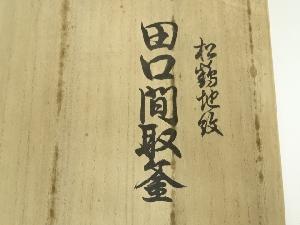 松鶴地紋
田口間取釜